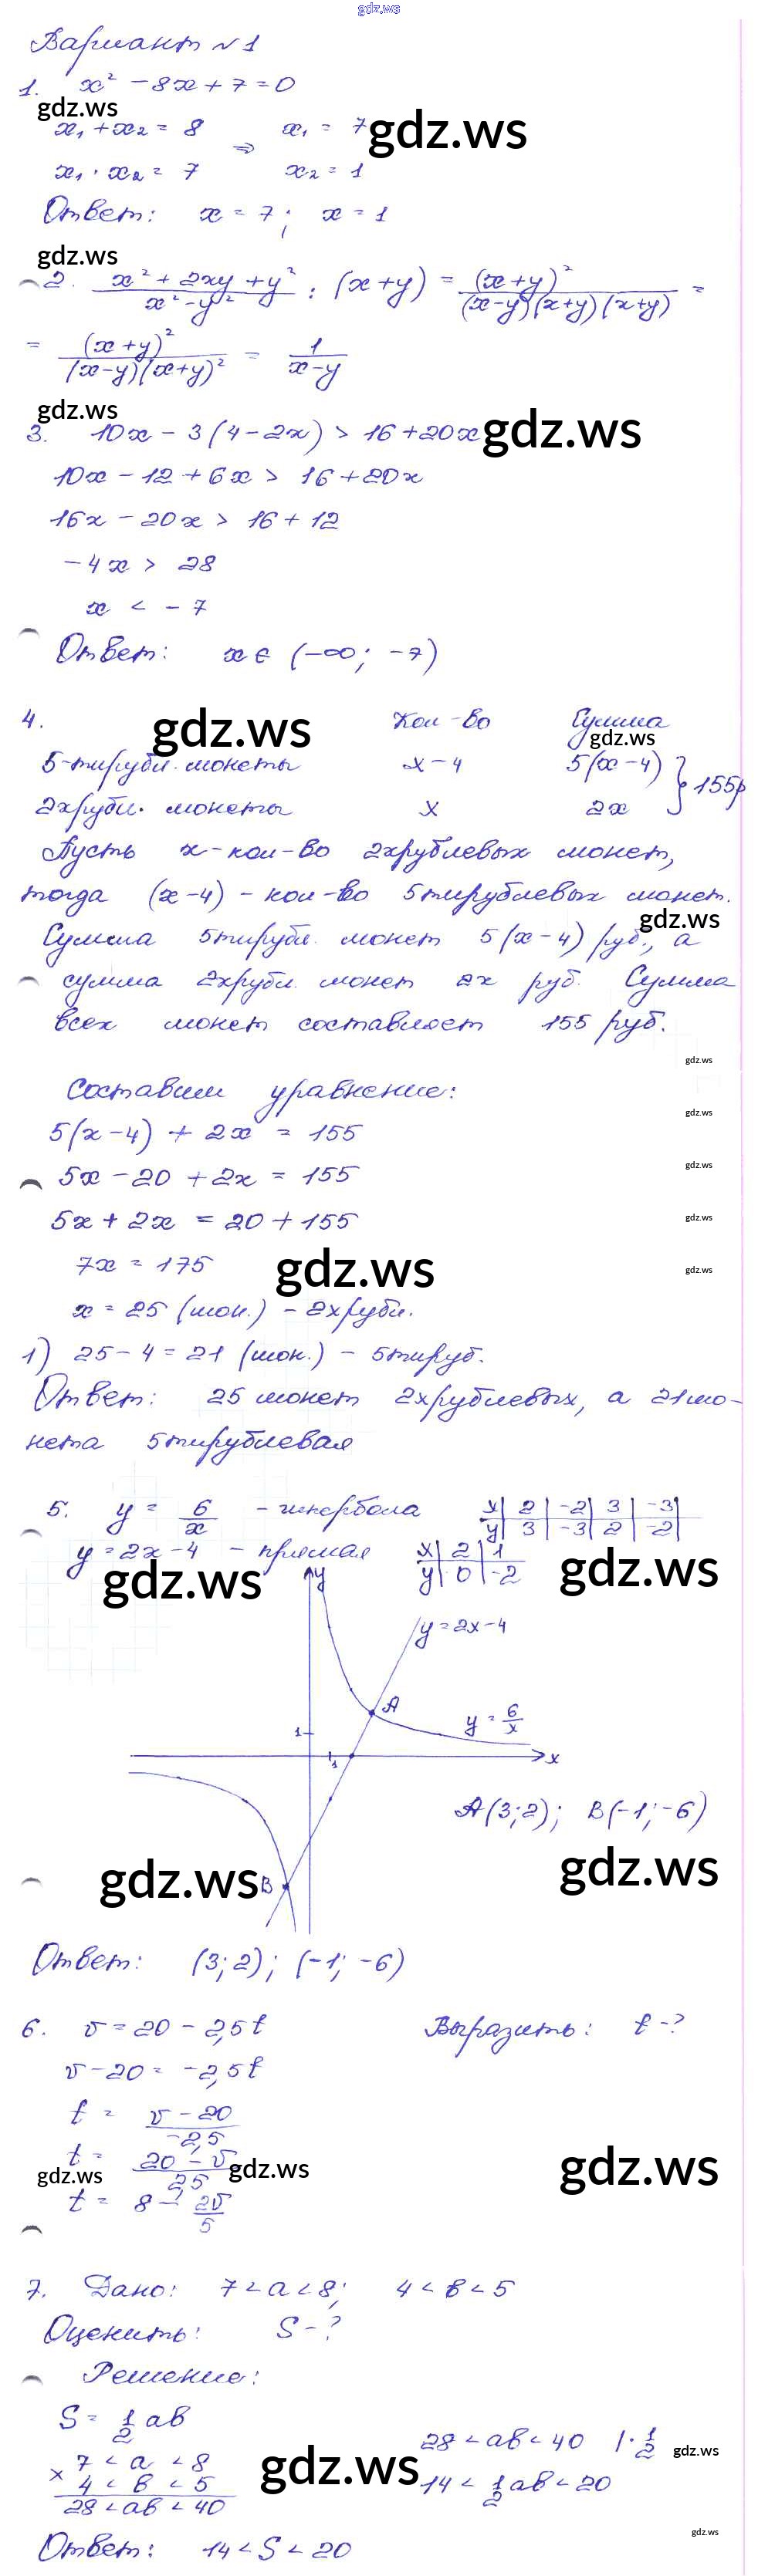 gdz.ws
Вариант №1
1. x² - 8x + 7 = 0
gdz.ws
x₁ + x₂ = 8 ⇒ x₁ = 7
gdz.ws
x₁ · x₂ = 7 x₂ = 1
Ответ: x = 7; x = 1
gdz.ws
2. (x² + 2xy + y²)/(x² - y²) : (x+y) = (x+y)²/((x-y)(x+y)(x+y)) =
= (x+y)²/((x-y)(x+y)²) = 1/(x-y)
gdz.ws
3. 10x - 3(4-2x) > 16+20x
gdz.ws
10x - 12 + 6x > 16 + 20x
16x - 20x > 16 + 12
-4x > 28
x < -7
Ответ: x ∈ (-∞; -7)
4. Кол-во Сумма
gdz.ws
gdz.ws
5-тирубл. монеты x-4 5(x-4) } 155р
2хрубл. монеты x 2x
Пусть x - кол-во 2хрублевых монет,
тогда (x-4) - кол-во 5тирублевых монет.
gdz.ws
Сумма 5тирубл. монет 5(x-4) руб., а
сумма 2хрубл. монет 2x руб. Сумма
всех монет составляет 155 руб.
gdz.ws
Составим уравнение:
gdz.ws
5(x-4) + 2x = 155
gdz.ws
5x - 20 + 2x = 155
gdz.ws
5x + 2x = 20 + 155
7x = 175
gdz.ws
gdz.ws
x = 25 (мон.) - 2хрубл.
1) 25 - 4 = 21 (мон.) - 5тируб.
Ответ: 25 монет 2хрублевых, а 21 мо-
нета 5тирублевая
5. y = 6/x - гипербола x | 2 | -2 | 3 | -3 |
y | 3 | -3 | 2 | -2 |
y = 2x - 4 - прямая x | 2 | 1
y | 0 | -2
gdz.ws
gdz.ws
y
y = 2x-4
A
y = 6/x
1
1
x
A(3;2); B(-1;-6)
gdz.ws
B
gdz.ws
Ответ: (3;2); (-1;-6)
6. v = 20 - 2,5t Выразить: t-?
v - 20 = -2,5t
t = (v - 20)/(-2,5)
t = (20 - v)/2,5
gdz.ws
gdz.ws
gdz.ws
t = 8 - 2v/5
7. Дано: 7 < a < 8; 4 < b < 5
Оценить: S-?
Решение:
S = 1/2 ab
28 < ab < 40 | · 1/2
gdz.ws
× 7 < a < 8
4 < b < 5
gdz.ws
14 < 1/2 ab < 20
28 < ab < 40
gdz.ws
Ответ: 14 < S < 20